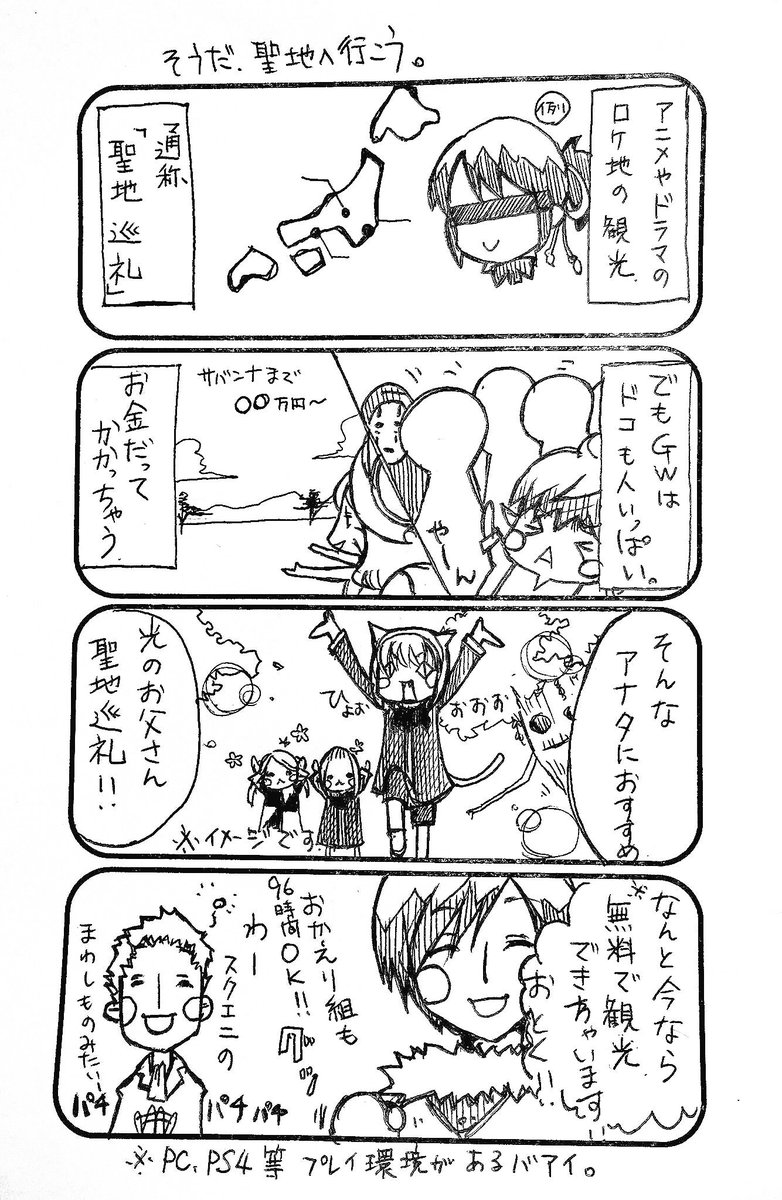 そうだ、聖地へ行こう。
アニメやドラマの
ロケ地の観光、
例
通称
「聖地巡礼」
でもGWは
ドコも人いっぱい。
やーん
サバンナまで
〇〇万円～
お金だって
かかっちゃう
そんな
アナタにおすすめ
おおお
ひょお
光のお父さん
聖地巡礼!!
※イメージです
なんと今なら
※無料で観光
できちゃいます
おとく!!
おかえり組も
96時間OK!!
グッ
わー
スクエニの
まわしものみたいー
パチ
パチパチ
※PC、PS4等 プレイ環境がある バアイ。